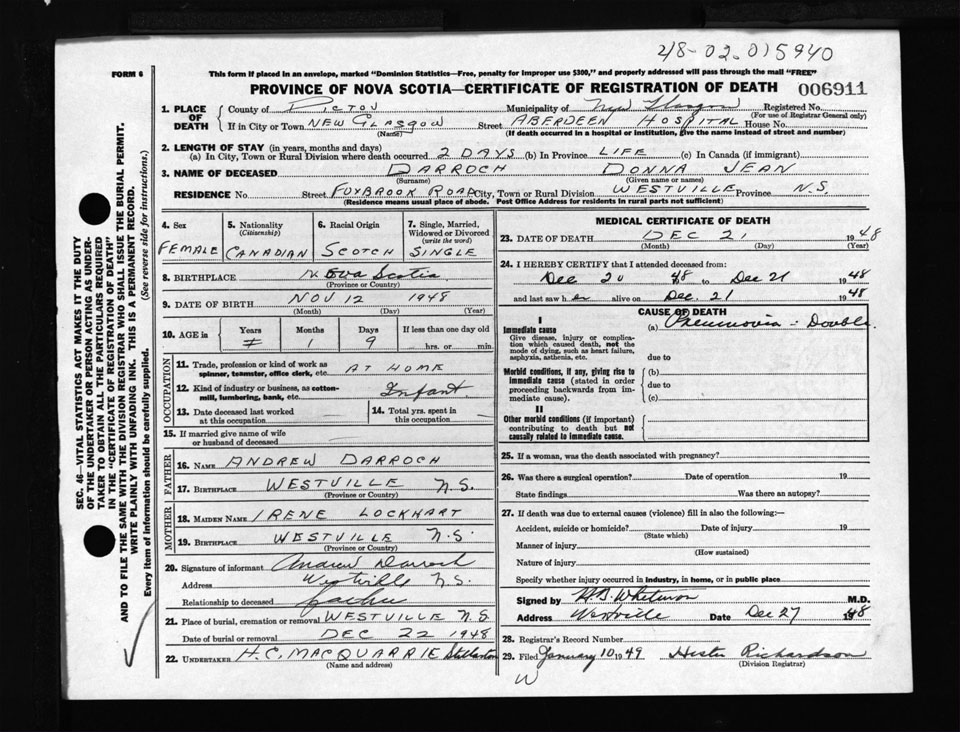 48-02.015940
FORM 6
This form if placed in an envelope, marked "Dominion Statistics—Free, penalty for improper use $300," and properly addressed will pass through the mail "FREE"
PROVINCE OF NOVA SCOTIA—CERTIFICATE OF REGISTRATION OF DEATH 006911
1. PLACE OF DEATH
County of PICTOU Municipality of New Glasgow Registered No.
(For use of Registrar General only)
If in City or Town NEW GLASGOW Street ABERDEEN HOSPITAL House No.
(Name) (If death occurred in a hospital or institution, give the name instead of street and number)
2. LENGTH OF STAY (in years, months and days)
(a) In City, Town or Rural Division where death occurred 2 DAYS (b) In Province LIFE (c) In Canada (if immigrant)
3. NAME OF DECEASED DARROCH DONNA JEAN
(Surname) (Given name or names)
RESIDENCE No. Street FOXBROOK ROAD City, Town or Rural Division WESTVILLE Province N.S.
(Residence means usual place of abode. Post Office Address for residents in rural parts not sufficient)
4. Sex
FEMALE
5. Nationality
(Citizenship)
CANADIAN
6. Racial Origin
SCOTCH
7. Single, Married, Widowed or Divorced
(write the word)
SINGLE
8. BIRTHPLACE Nova Scotia
(Province or Country)
9. DATE OF BIRTH NOV 12 1948
(Month) (Day) (Year)
10. AGE in
Years Months Days If less than one day old
1 9 hrs. or min.
OCCUPATION
11. Trade, profession or kind of work as spinner, teamster, office clerk, etc. AT HOME
12. Kind of industry or business, as cotton-mill, lumbering, bank, etc. Infant
13. Date deceased last worked at this occupation
14. Total yrs. spent in this occupation
15. If married give name of wife or husband of deceased
FATHER
16. NAME ANDREW DARROCH
17. BIRTHPLACE WESTVILLE N.S.
(Province or Country)
MOTHER
18. MAIDEN NAME IRENE LOCKHART
19. BIRTHPLACE WESTVILLE N.S.
(Province or Country)
20. Signature of informant Andrew Darroch
Address Westville N.S.
Relationship to deceased father
21. Place of burial, cremation or removal WESTVILLE N.S.
Date of burial or removal DEC 22 1948
22. UNDERTAKER H.C. MACQUARRIE Stellarton
(Name and address)
MEDICAL CERTIFICATE OF DEATH
23. DATE OF DEATH DEC 21 1948
(Month) (Day) (Year)
24. I HEREBY CERTIFY that I attended deceased from:
Dec 20 48 to Dec 21 1948
and last saw h er alive on Dec. 21 1948
CAUSE OF DEATH
I
Immediate cause
Give disease, injury or complication which caused death, not the mode of dying, such as heart failure, asphyxia, asthenia, etc.
(a) Pneumonia : Double.
due to
Morbid conditions, if any, giving rise to immediate cause (stated in order proceeding backwards from immediate cause).
(b)
due to
(c)
II
Other morbid conditions (if important) contributing to death but not causally related to immediate cause.
25. If a woman, was the death associated with pregnancy?
26. Was there a surgical operation? Date of operation 19
State findings Was there an autopsy?
27. If death was due to external causes (violence) fill in also the following:—
Accident, suicide or homicide? Date of injury 19
(State which)
Manner of injury
(How sustained)
Nature of injury
Specify whether injury occurred in industry, in home, or in public place
Signed by H.B. Whitman M.D.
Address Westville Date Dec 27 1948
28. Registrar's Record Number
29. Filed January 10 1949 Hester Richardson
(Division Registrar)
W
SEC. 46—VITAL STATISTICS ACT MAKES IT THE DUTY
OF THE UNDERTAKER OR PERSON ACTING AS UNDER-
TAKER TO OBTAIN ALL THE PARTICULARS REQUIRED
IN THE "CERTIFICATE OF REGISTRATION OF DEATH"
AND TO FILE THE SAME WITH THE DIVISION REGISTRAR WHO SHALL ISSUE THE BURIAL PERMIT.
WRITE PLAINLY WITH UNFADING INK. THIS IS A PERMANENT RECORD.
Every item of information should be carefully supplied. (See reverse side for instructions.)